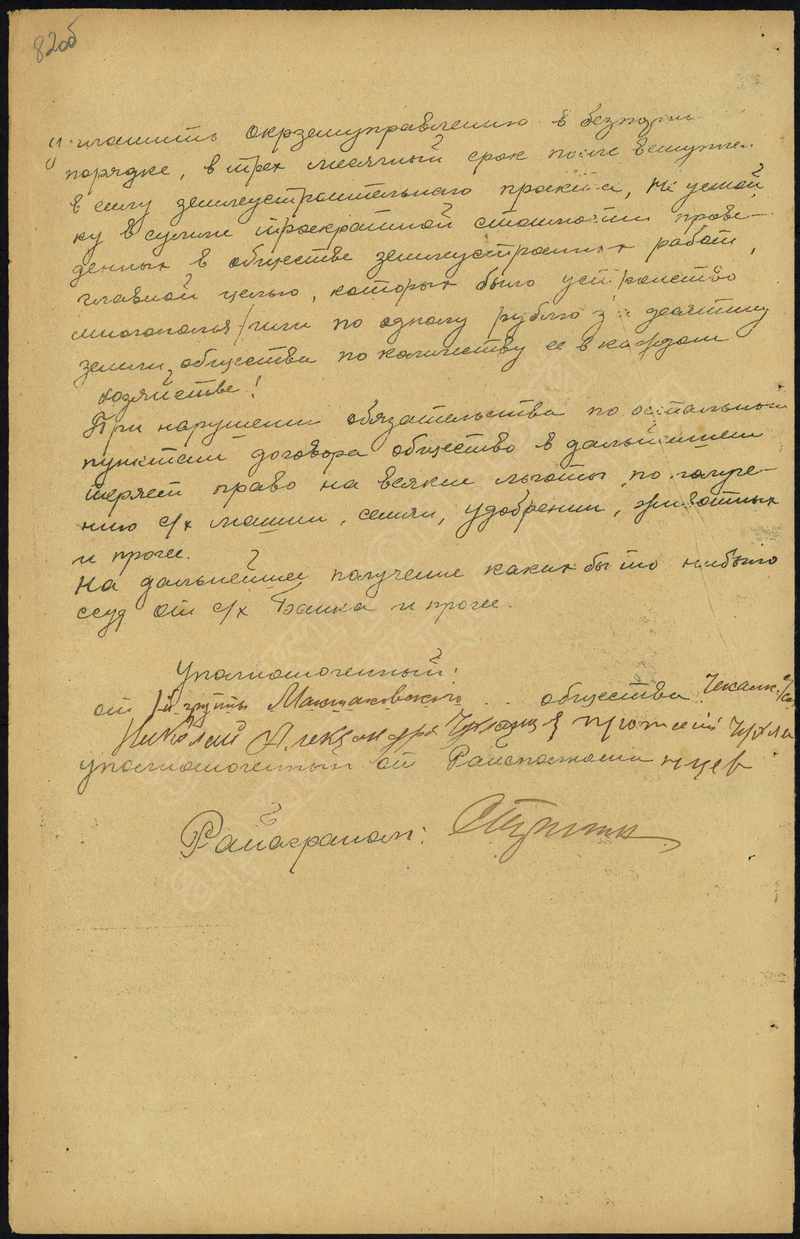 82об
окрземуправлению в безспорн
порядке, в трех месячный срок после вступлен.
в силу землеустроительного проекта, неустой
ку в сумме троекратной стоимости прове-
денных в обществе землеустроит. работ,
главной целью, которых было устройство
многополья/или по одному рублю за десятину
земли, общества по количеству ее в каждом
хозяйстве!
При нарушении обязательства по остальным
пунктам договора общество в дальнейшем
теряет право на всякие льготы по получе-
нию с/х машин, семян, удобрений, животных
и проче.
На дальнейшее получение каких бы то нибыло
ссуд от с/х Банка и проче.
Уполномоченный:
от 1й группы общества
Николай Александр
уполномоченный от нцев
Райагроном: